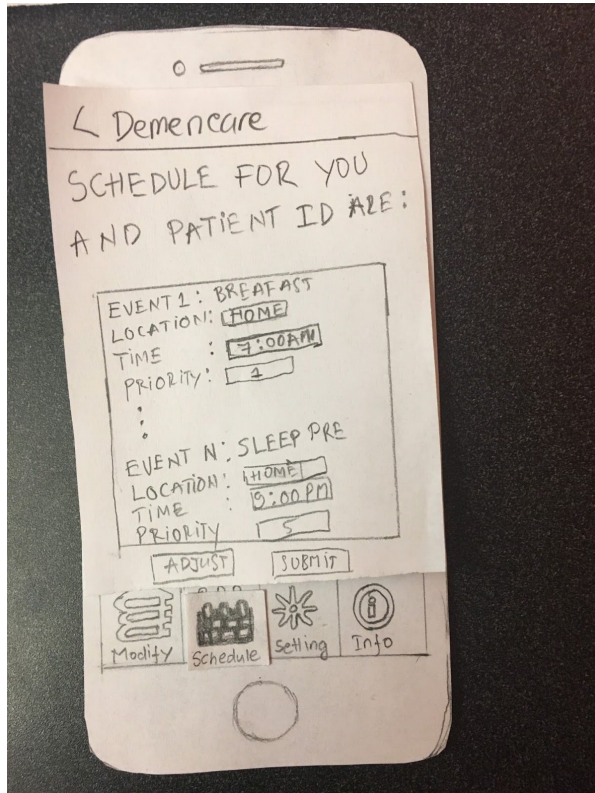 < Demencare
SCHEDULE FOR YOU
AND PATIENT ID ARE:
EVENT 1: BREAFAST
LOCATION: HOME
TIME : 7:00AM
PRIORITY: 1
EVENT N: SLEEP PRE
LOCATION: HOME
TIME : 9:00PM
PRIORITY 5
ADJUST SUBMIT
Modify Schedule Setting Info